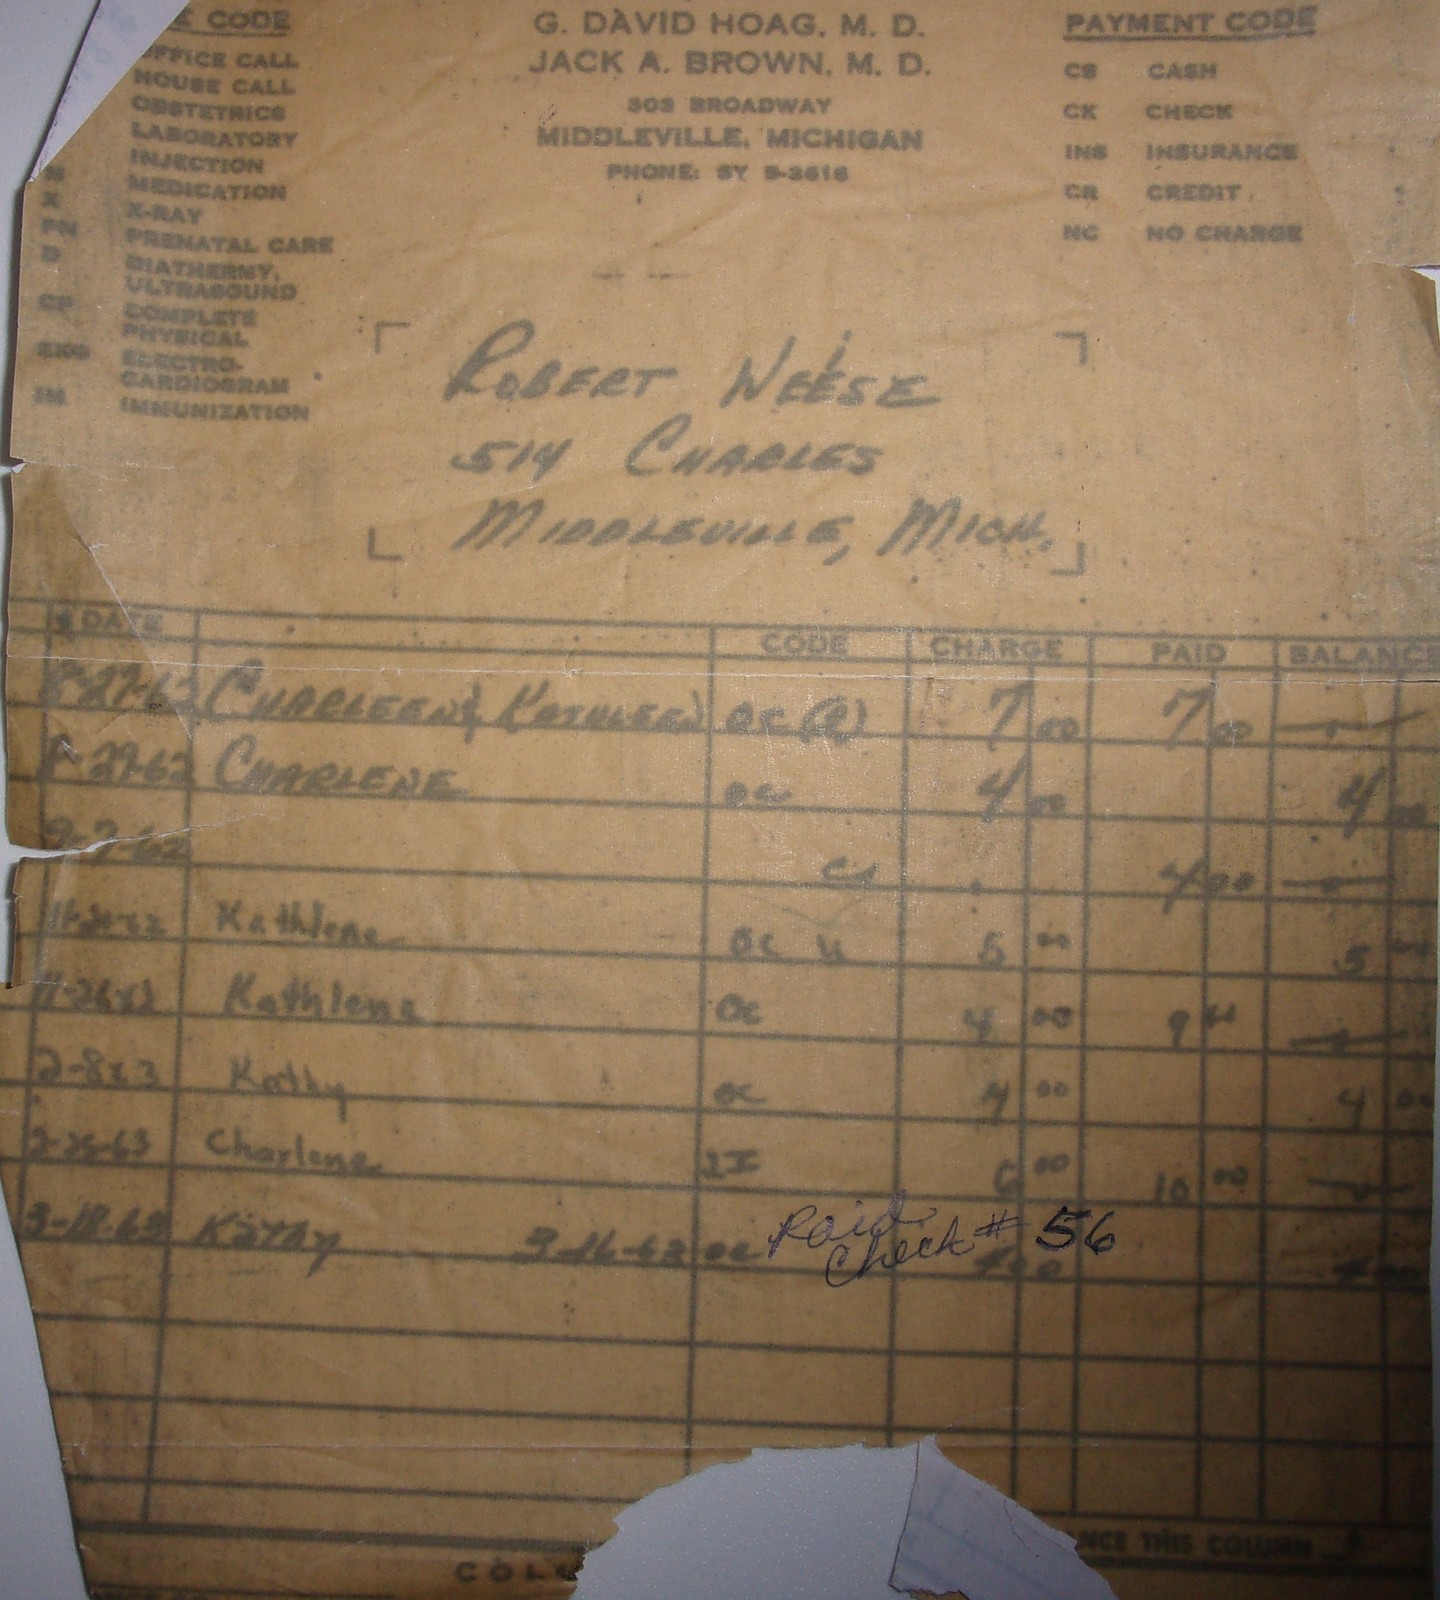 E CODE
OFFICE CALL
HOUSE CALL
OBSTETRICS
LABORATORY
INJECTION
M MEDICATION
X X-RAY
PN PRENATAL CARE
D DIATHERMY,
ULTRASOUND
CP COMPLETE
PHYSICAL
EKG ELECTRO-
CARDIOGRAM
IM IMMUNIZATION
G. DAVID HOAG, M. D.
JACK A. BROWN, M. D.
303 BROADWAY
MIDDLEVILLE, MICHIGAN
PHONE: SY 5-3616
PAYMENT CODE
CS CASH
CK CHECK
INS INSURANCE
CR CREDIT
NC NO CHARGE
ROBERT WEESE
514 CHARLES
MIDDLEVILLE, MICH.
DATE CODE CHARGE PAID BALANCE
8-27-62 CHARLEEN & KATHLEEN OC (2) 7 00 7 00
8-29-62 CHARLENE OC 4 00 4 00
9-7-62 4 00
Kathlene OC 5 00 5 00
11-26-62 Kathlene OC 4 00 9 00
2-8-63 Kathy OC 4 00 4 00
2-25-63 Charlene 2I 6 00 10 00
3-18-63 KATHY 3-16-63 OC 4 00 4 00
Paid
Check # 56
ANCE THIS COLUMN
COLU